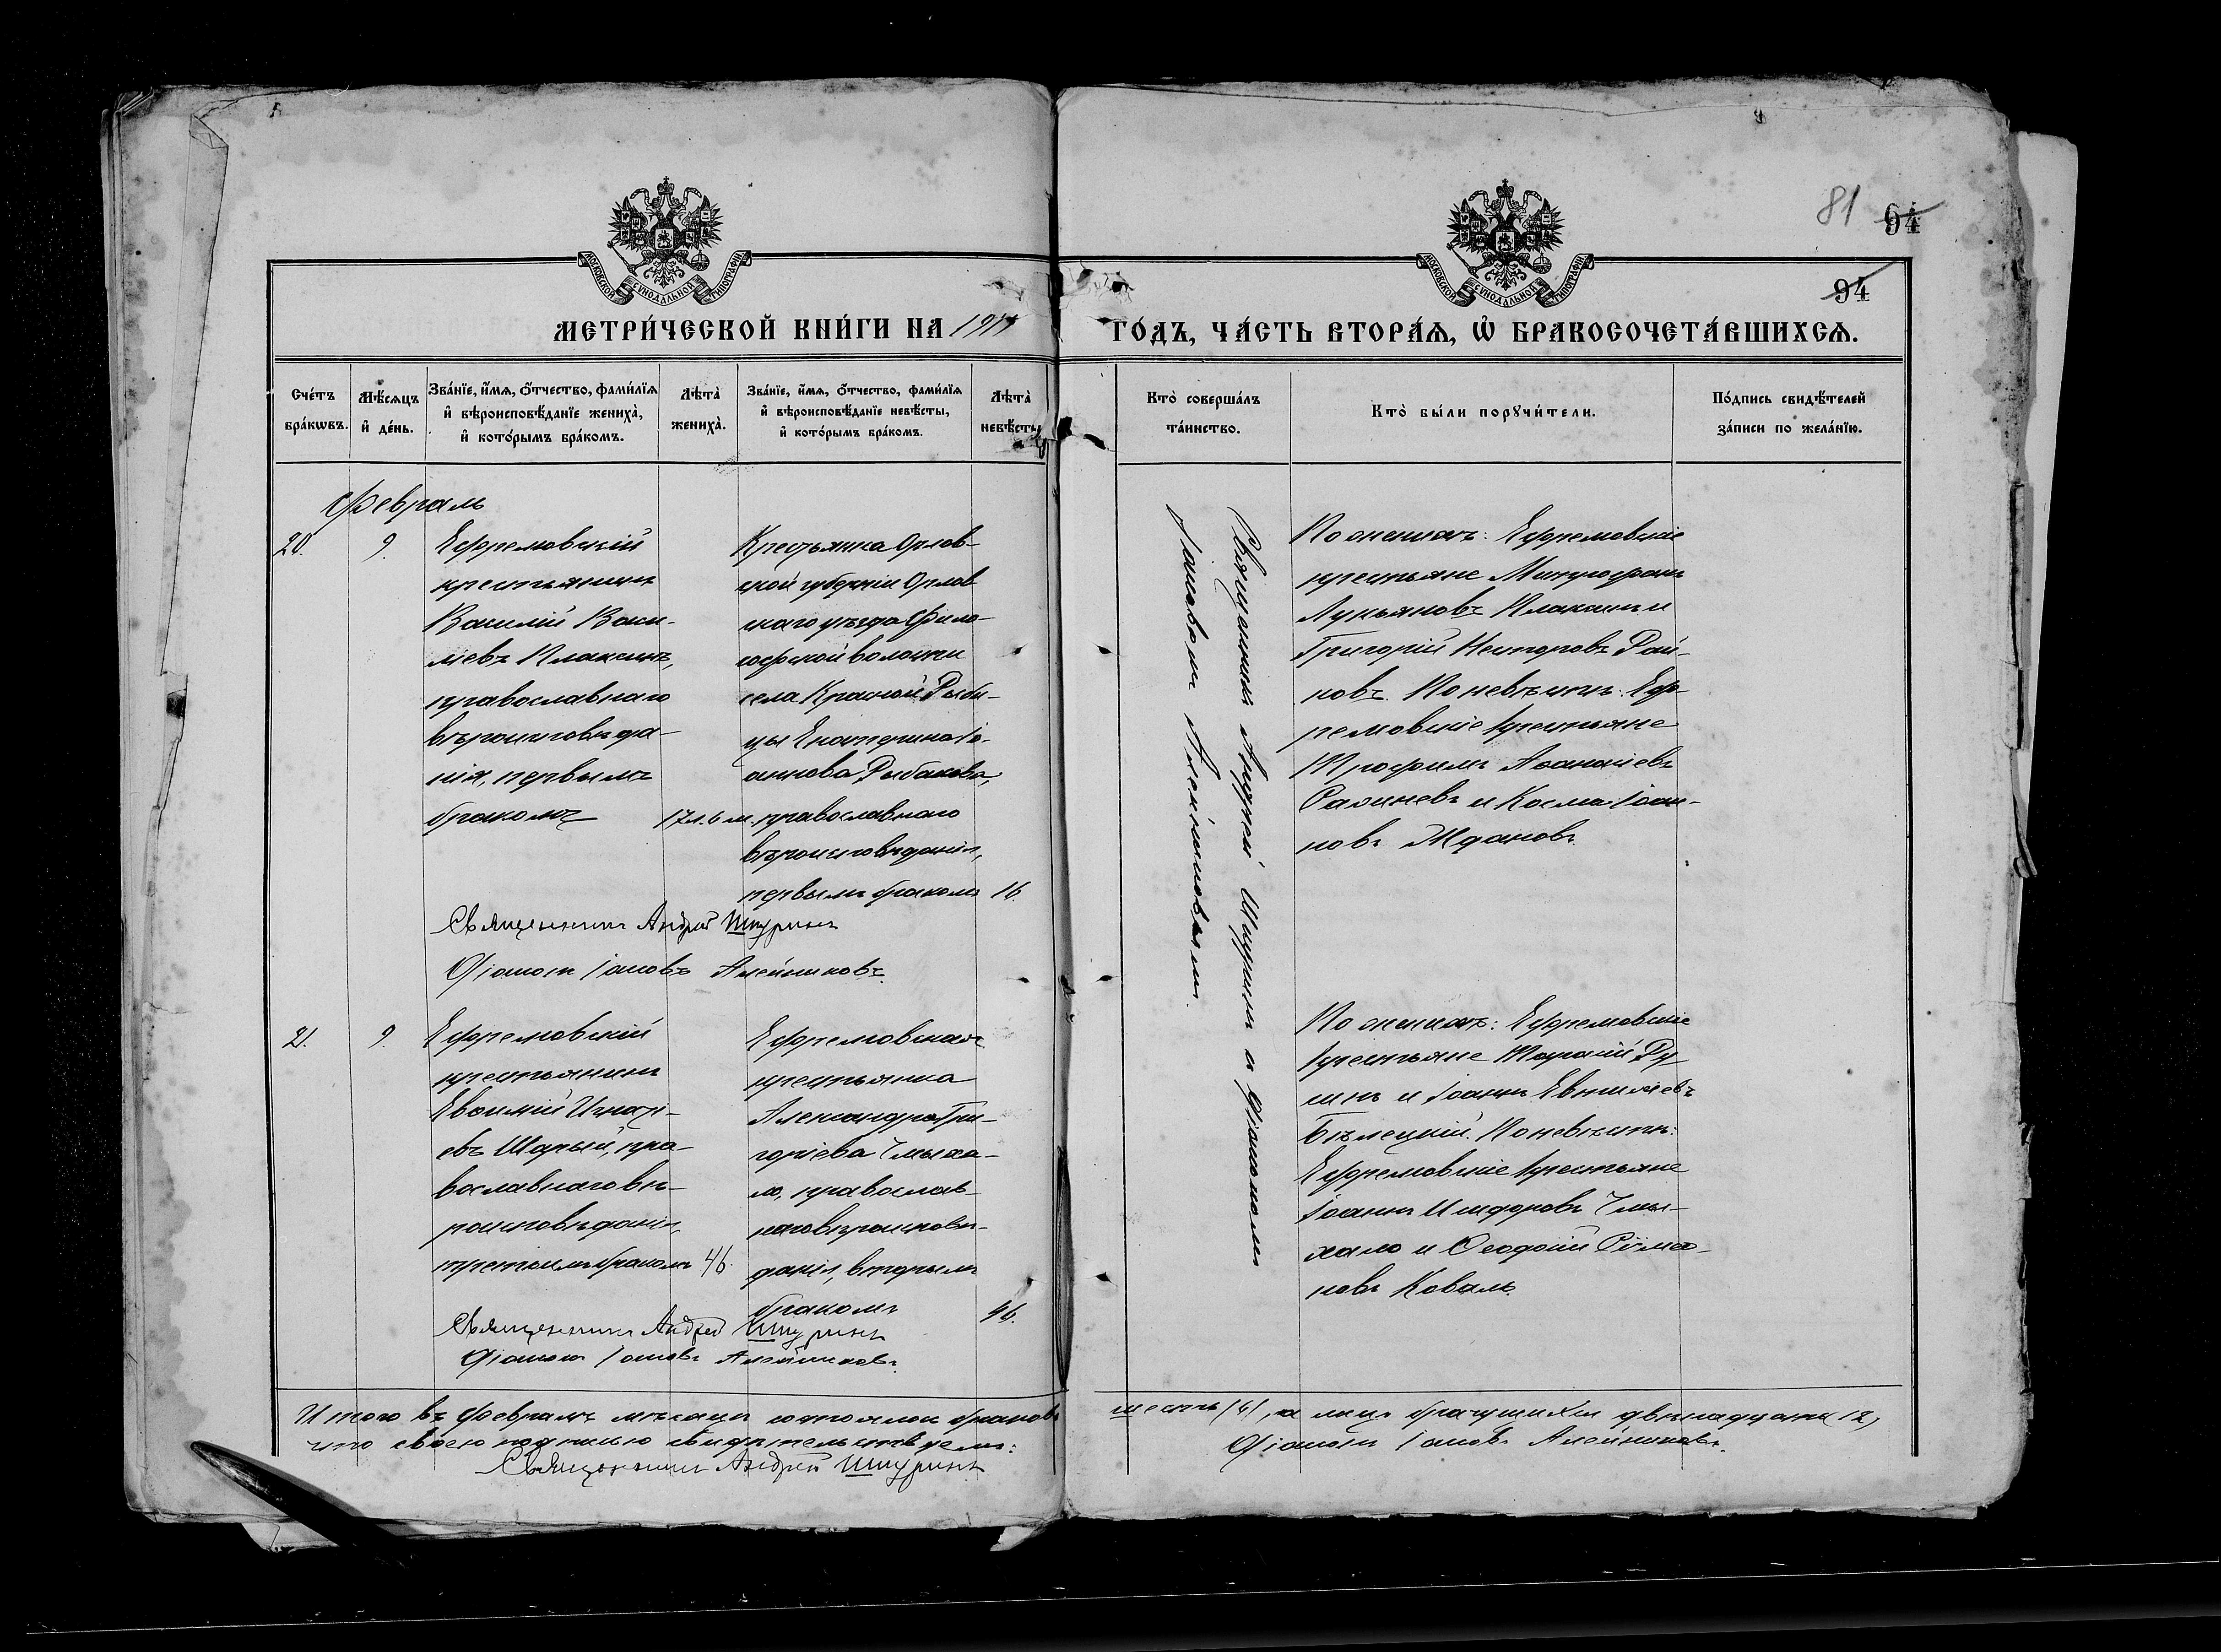 81 94
94
МЕТРИ́ЧЕСКОЙ КНИ́ГИ НА 1917 ГО́ДЪ, ЧА́СТЬ ВТОРА́Ѧ, Ѡ҆ БРАКОСОЧЕТА́ВШИХСѦ.
МОСКОВСКОЙ СѴНОДАЛЬНОЙ ТИПОГРАФІИ
МОСКОВСКОЙ СѴНОДАЛЬНОЙ ТИПОГРАФІИ
Сче́тъ бра́кѡвъ.
Мѣ́сѧцъ и҆ де́нь.
Зва́нїе, и҆́мѧ, ѻ҆́тчество, фами́лїѧ
и҆ вѣроисповѣ́данїе жениха̀,
и҆ кото́рымъ бра́комъ.
Лѣ́та̀ жениха̀.
Зва́нїе, и҆́мѧ, ѻ҆́тчество, фами́лїѧ
и҆ вѣроисповѣ́данїе невѣ́сты,
и҆ кото́рымъ бра́комъ.
Лѣ́та̀ невѣ́сты
Кто̀ соверша́лъ та́инство.
Кто̀ бы́ли порꙋчи́тели.
По́дпись свидѣ́телей за́писи по жела́нїю.
Февраль
20.
9.
Ефремовскій
крестьянинъ
Василій Васи-
ліевъ Плаксинъ,
православнаго
вѣроисповѣда-
нія, первымъ
бракомъ
17 л. 6 м.
Крестьянка Орлов-
ской губерніи Орлов
скаго уѣзда Фило-
софской волости
села Красной Рыби-
цы Екатерина Іо-
аннова Рыбакова,
православнаго
вѣроисповѣданія,
первымъ бракомъ
16.
Священникъ Андрей Шкуринъ и діаконъ
Іаковъ Алейниковъ.
По женихѣ: Ефремовскіе
крестьяне Митрофанъ
Лукьяновъ Плаксинъ и
Григорій Несторовъ Рай-
ковъ. По невѣстѣ: Еф-
ремовскіе крестьяне
Трофимъ Аѳанасіевъ
и Косма Іоан-
новъ Ждановъ.
Священникъ Андрей Шкуринъ
Діаконъ Іаковъ Алейниковъ.
21.
9.
Ефремовскій
крестьянинъ
Евѳимій Игнаті-
евъ Шарый, пра-
вославнаго вѣ-
роисповѣданія,
третьимъ бракомъ
46.
Ефремовская
крестьянка
Александра Гри-
горіева Чмыха-
ло, православ-
наго вѣроисповѣ-
данія, вторымъ
бракомъ
46.
По женихѣ: Ефремовскіе
крестьяне Тарасій Ру
и Іоаннъ
Бѣлецкій. По невѣстѣ:
Ефремовскіе крестьяне
Іоаннъ Исидоровъ Чмы-
хало и Ѳеодосій Рома-
новъ Коваль.
Священникъ Андрей Шкуринъ
Діаконъ Іаковъ Алейниковъ.
Итого въ Февралѣ мѣсяцѣ состоялось браковъ шесть /6/, а лицъ брачущихся двѣнадцать 12,
что своею подписью свидѣтельствуемъ:
Священникъ Андрей Шкуринъ
Діаконъ Іаковъ Алейниковъ.